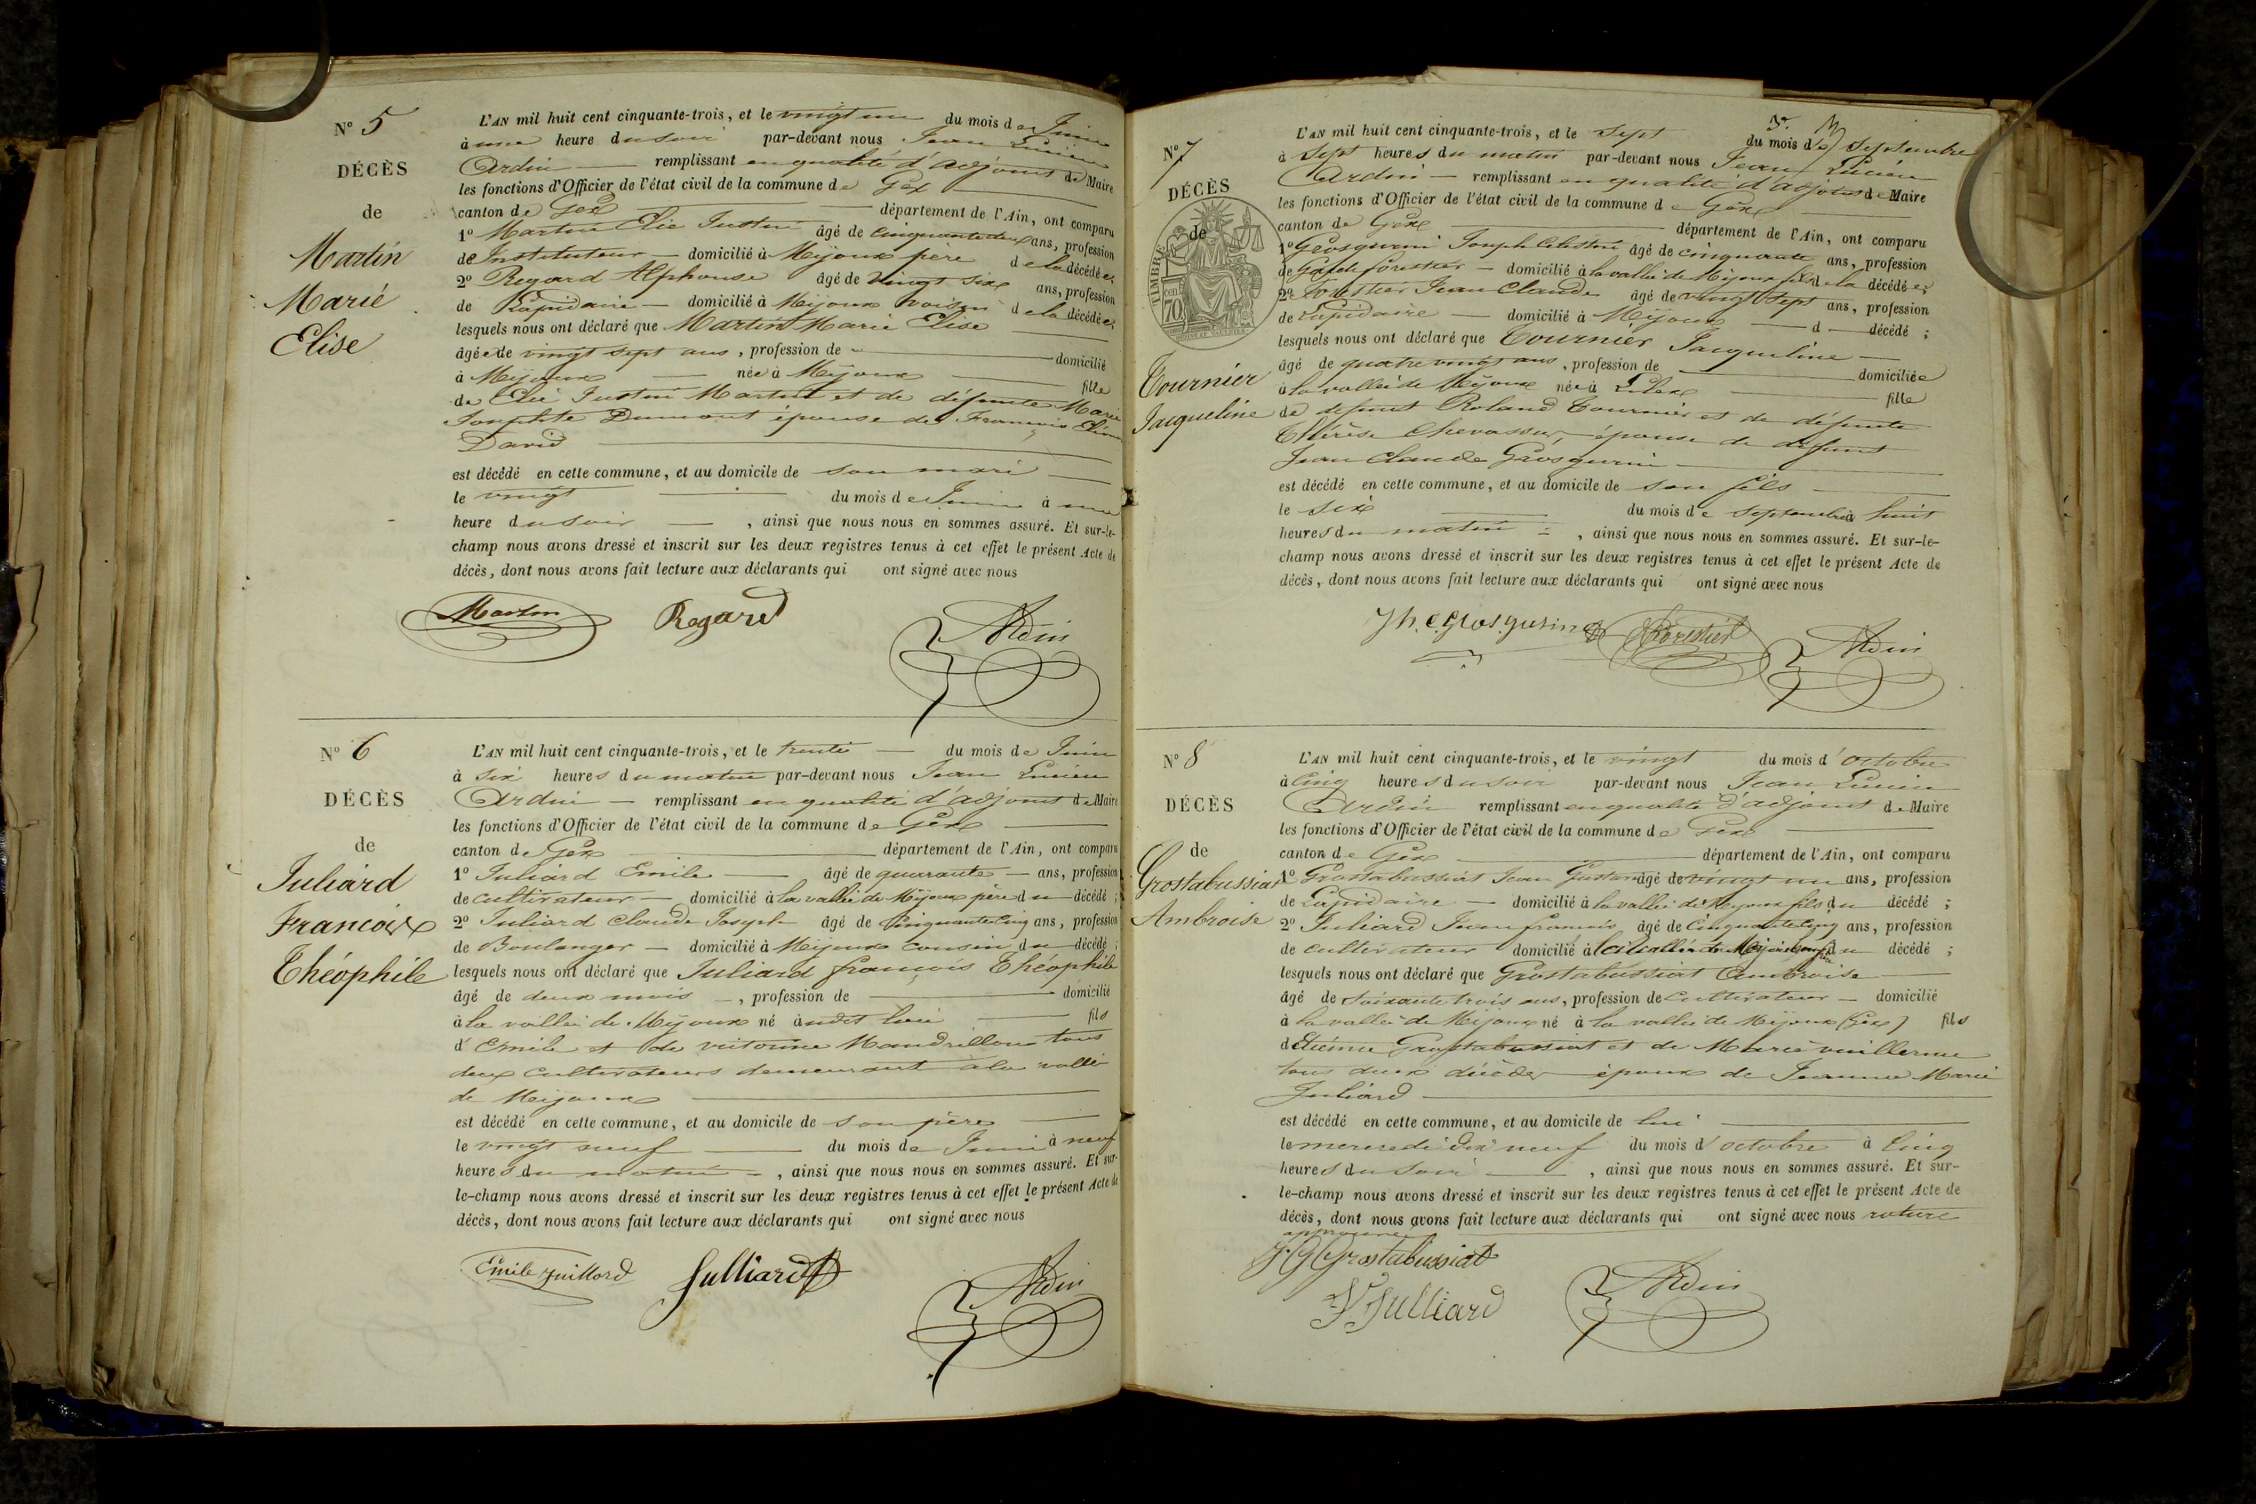 N° 5
DÉCÈS
de
Martin
Marie
Elise
L'AN mil huit cent cinquante-trois, et le vingt un du mois de Juin
à une heure du soir par-devant nous Jean Lucien
Ardin remplissant en qualité d'adjoint de Maire
les fonctions d'Officier de l'état civil de la commune de Gex
canton de Gex département de l'Ain, ont comparu
1° Martin Elie Justin âgé de cinquante deux ans, profession
de Instituteur domicilié à Mijoux père de la décédée;
2° Regard Alphonse âgé de vingt six ans, profession
de Lapidaire domicilié à Mijoux voisin de la décédée;
lesquels nous ont déclaré que Martin Marie Elise
âgée de vingt sept ans, profession de domicilié
à Mijoux née à Mijoux fille
de Elie Justin Martin et de défunte Marie
Josephte Dumont épouse de François
David
est décédé en cette commune, et au domicile de son mari
le vingt du mois de Juin à une
heure du soir, ainsi que nous nous en sommes assuré. Et sur-le-
champ nous avons dressé et inscrit sur les deux registres tenus à cet effet le présent Acte de
décès, dont nous avons fait lecture aux déclarants qui ont signé avec nous
Martin Regard Ardin
N° 6
DÉCÈS
de
Juliard
François
Théophile
L'AN mil huit cent cinquante-trois, et le trente du mois de Juin
à six heures du matin par-devant nous Jean Lucien
Ardin remplissant en qualité d'adjoint de Maire
les fonctions d'Officier de l'état civil de la commune de Gex
canton de Gex département de l'Ain, ont comparu
1° Juliard Emile âgé de quarante ans, profession
de cultivateur domicilié à la vallée de Mijoux père du décédé;
2° Juliard Claude Joseph âgé de Cinquante Cinq ans, profession
de Boulanger domicilié à Mijoux cousin du décédé;
lesquels nous ont déclaré que Juliard françois Théophile
âgé de deux mois, profession de domicilié
à la vallée de Mijoux né à udit lieu fils
d'Emile et de victorine Mandrillon tous
deux cultivateurs demeurant à la vallée
de Mijoux
est décédé en cette commune, et au domicile de son père
le vingt neuf du mois de Juin à neuf
heures du matin, ainsi que nous nous en sommes assuré. Et sur-
le-champ nous avons dressé et inscrit sur les deux registres tenus à cet effet le présent Acte de
décès, dont nous avons fait lecture aux déclarants qui ont signé avec nous
Emile Juillard Julliard Ardin
N° 7
DÉCÈS
de
TIMBRE
70
Tournier
Jacqueline
L'AN mil huit cent cinquante-trois, et le sept du mois de Septembre
à sept heures du matin par-devant nous Jean Lucien
Ardin remplissant en qualité d'adjoint de Maire
les fonctions d'Officier de l'état civil de la commune de Gex
canton de Gex département de l'Ain, ont comparu
1° Grosgurin Joseph Célestin âgé de cinquante ans, profession
de Garde forestier domicilié à la vallée de Mijoux fils de la décédée;
2° Forestier Jean Claude âgé de vingt sept ans, profession
de Lapidaire domicilié à Mijoux d décédé;
lesquels nous ont déclaré que Tournier Jacqueline
âgé de quatre vingt ans, profession de domiciliée
à la vallée de Mijoux née à Lelex fille
de défunt Roland Tournier et de défunte
Thérèse Chevassus, épouse de défunt
Jean Claude Grosgurin
est décédé en cette commune, et au domicile de son fils
le six du mois de septembre à huit
heures du matin, ainsi que nous nous en sommes assuré. Et sur-le-
champ nous avons dressé et inscrit sur les deux registres tenus à cet effet le présent Acte de
décès, dont nous avons fait lecture aux déclarants qui ont signé avec nous
Jh. C. Grosgurin Forestier Ardin
N° 8
DÉCÈS
de
Grostabussiat
Ambroise
L'AN mil huit cent cinquante-trois, et le vingt du mois d'octobre
à Cinq heures du soir par-devant nous Jean Lucien
Ardin remplissant en qualité d'adjoint de Maire
les fonctions d'Officier de l'état civil de la commune de Gex
canton de Gex département de l'Ain, ont comparu
1° Grostabussiat Jean Gustave âgé de vingt un ans, profession
de Lapidaire domicilié à la vallée de Mijoux fils du décédé;
2° Juliard Jean françois âgé de Cinquante Cinq ans, profession
de cultivateur domicilié à la vallée de Mijoux du décédé;
lesquels nous ont déclaré que Grostabussiat Ambroise
âgé de soixante trois ans, profession de cultivateur domicilié
à la vallée de Mijoux né à la vallée de Mijoux (Gex) fils
d'Etienne Grostabussiat et de Marie vuillerme
tous deux décédés époux de Jeanne Marie
Juliard
est décédé en cette commune, et au domicile de lui
le mercredi dix neuf du mois d'octobre à Cinq
heures du soir, ainsi que nous nous en sommes assuré. Et sur-
le-champ nous avons dressé et inscrit sur les deux registres tenus à cet effet le présent Acte de
décès, dont nous avons fait lecture aux déclarants qui ont signé avec nous rature
approuvée
J. G. Grostabussiat
J F Julliard Ardin